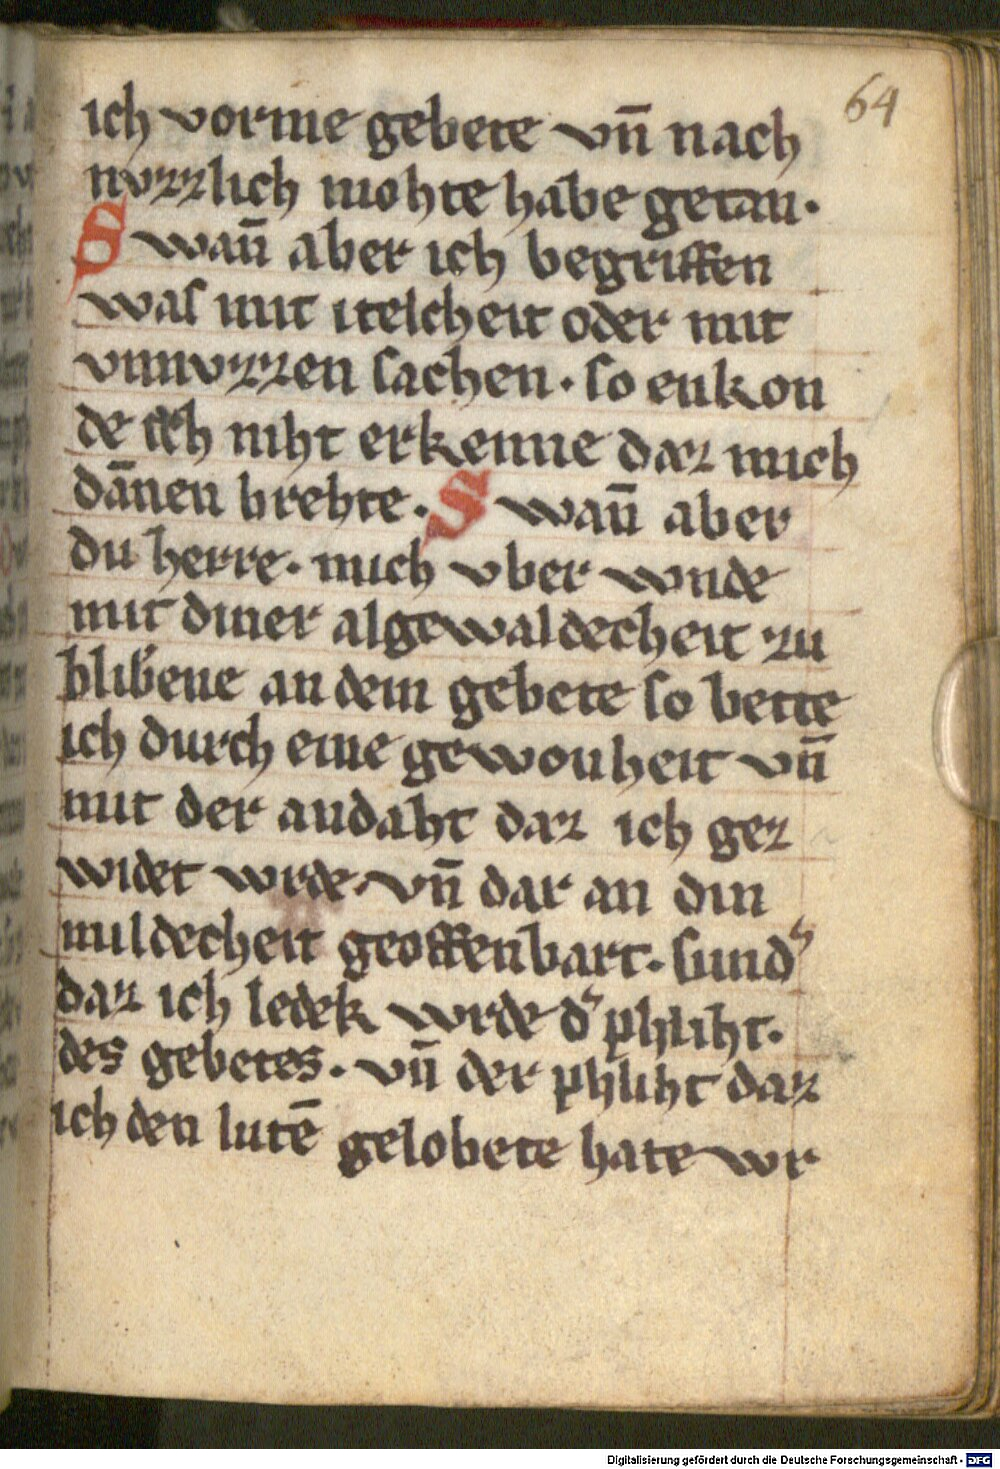 64
ich vorme gebete vn̄ nach
nvzzlich mohte habe getan·
Swan̄ aber ich begriffen
was mit itelcheit oder mit
vnnvzzen sachen· so enkon
de ich niht erkenne daz mich
dānen brehte· Swan̄ aber
du herre· mich vber wnde
mit diner algewaldecheit zu
blibene an dem gebete so bette
ich durch eine gewonheit vn̄
mit der andaht daz ich gez
widet wrde· vn̄ dar an din
mildecheit geoffenbart· sund᾽
daz ich ledek wrde d᾽ phliht·
des gebetes· vn̄ der phliht daz
ich den lutē gelobete hate wr
Digitalisierung gefördert durch die Deutsche Forschungsgemeinschaft - DFG